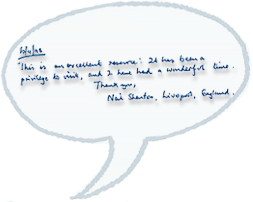 "This is an excellent resource! It has been a
privilege to visit, and I have had a wonderful time.
Thank you,
Liverpool, England.